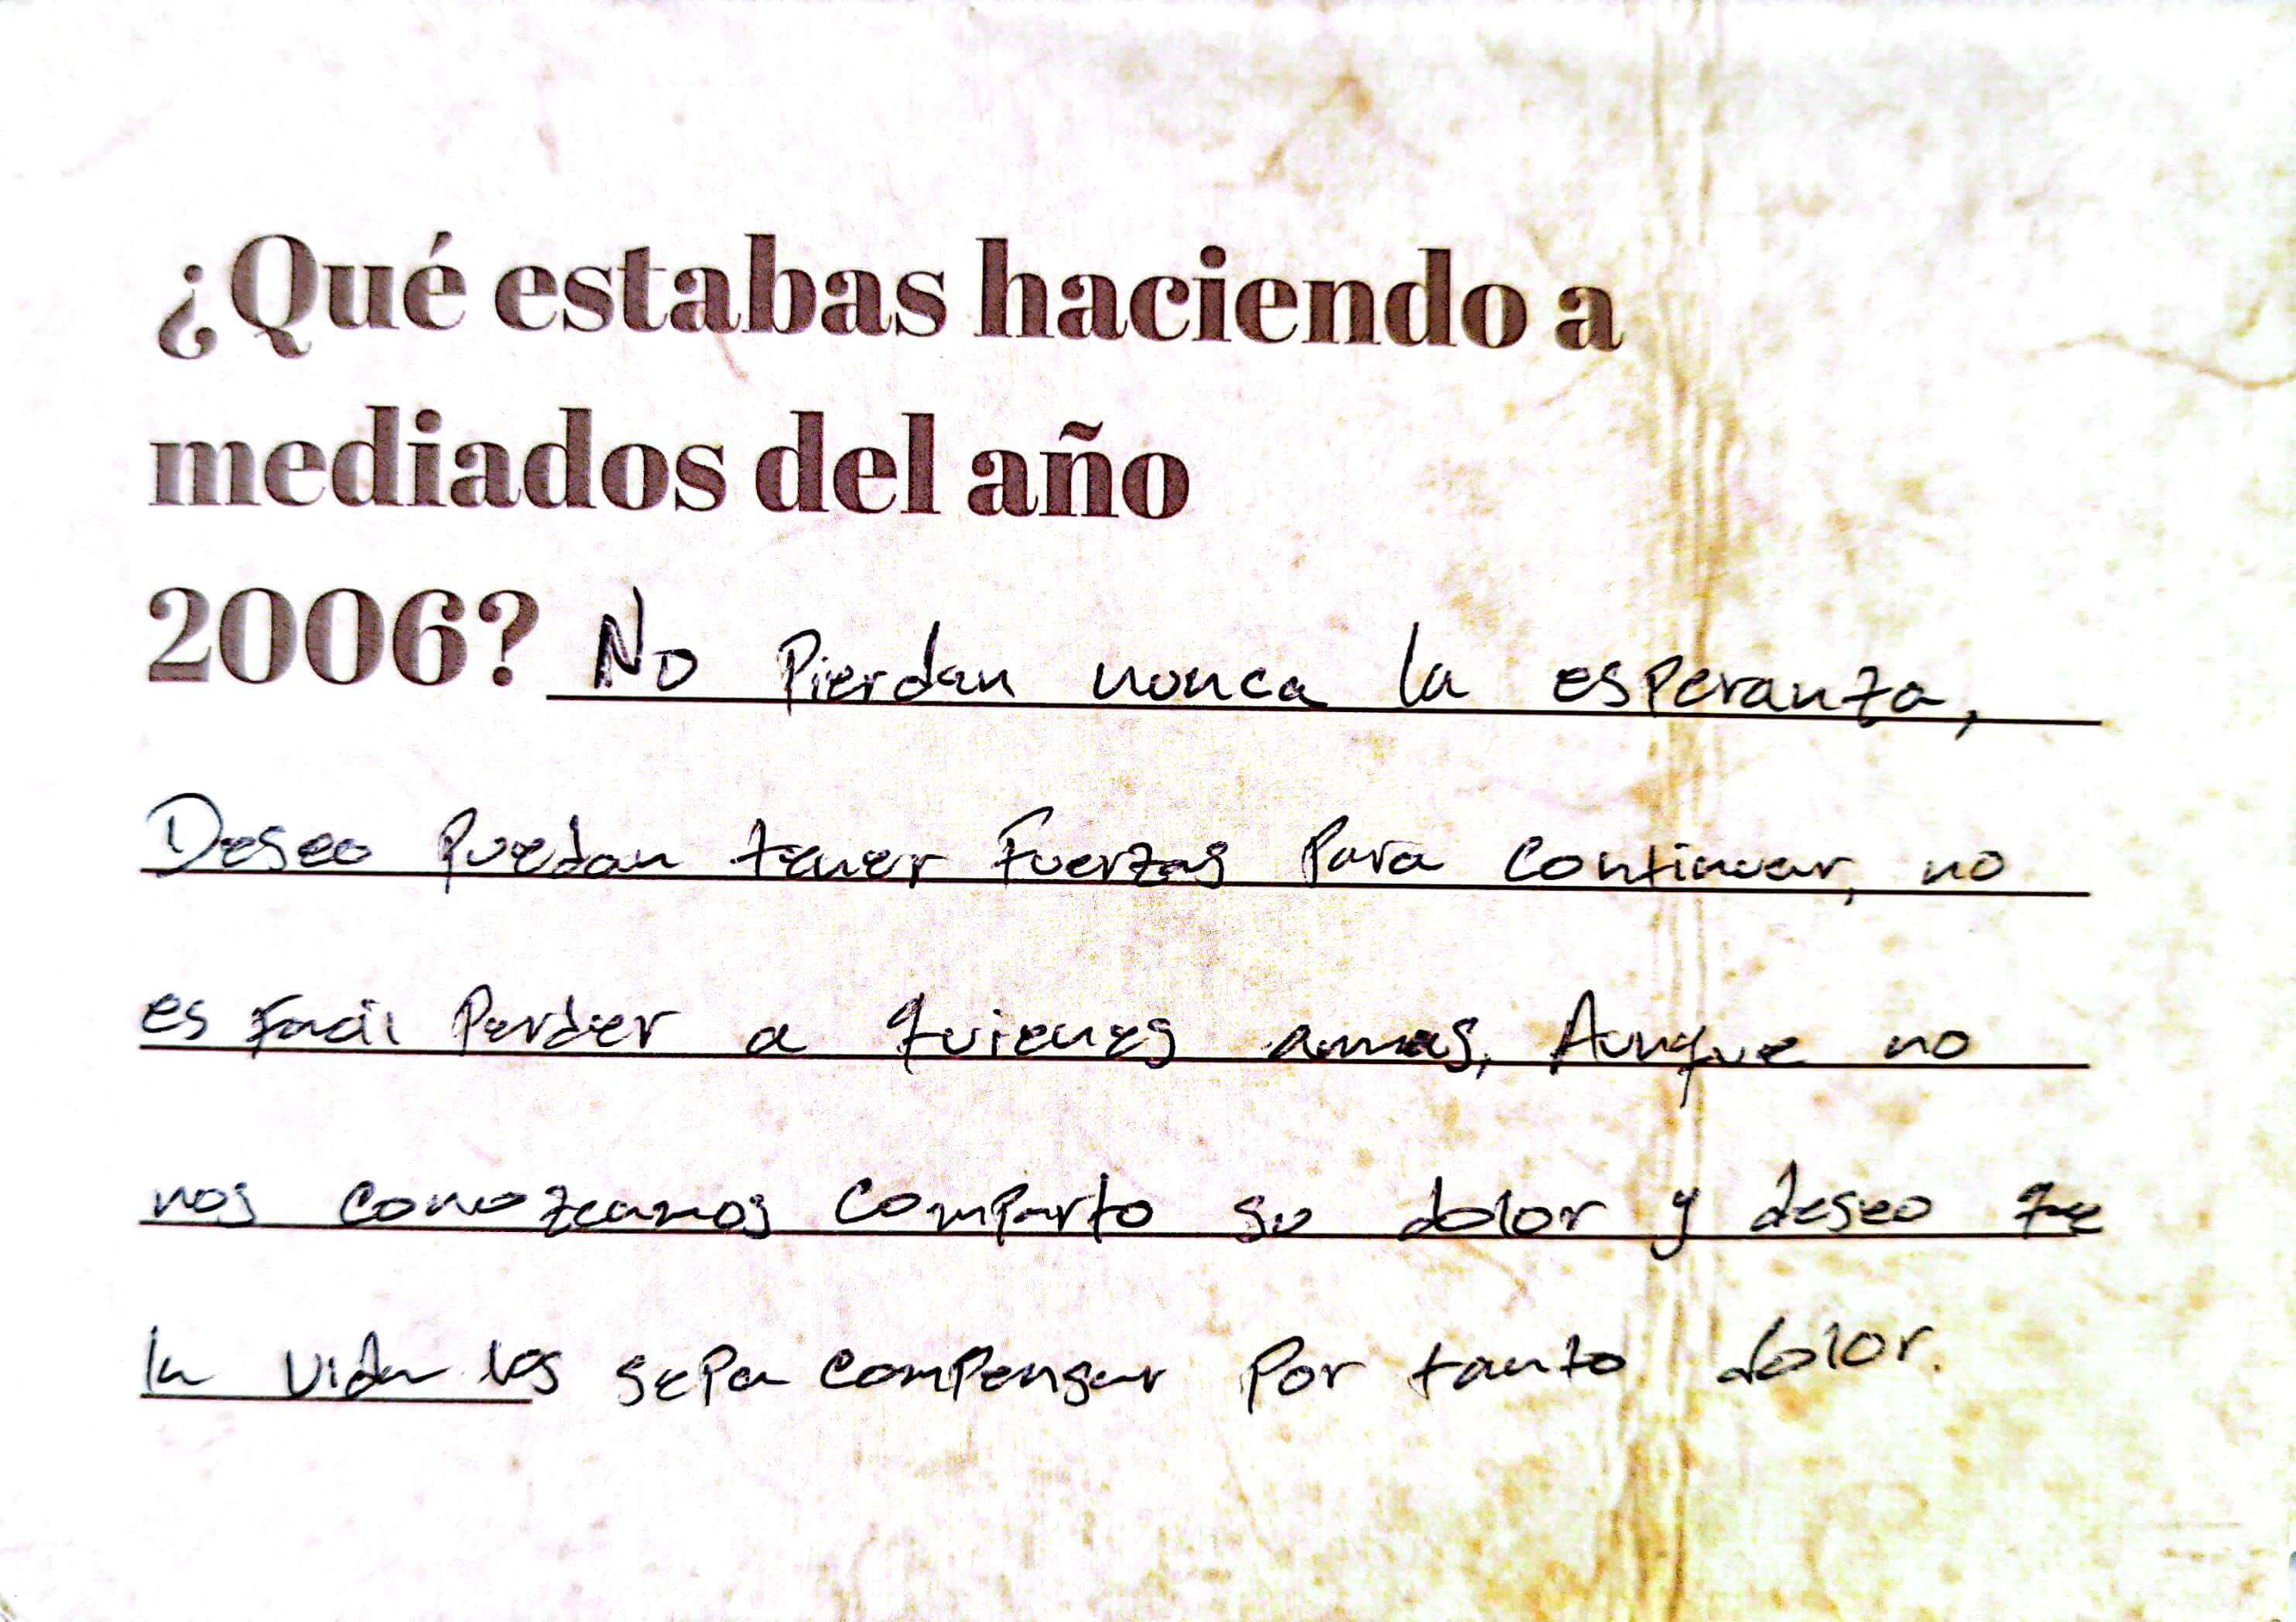 ¿Qué estabas haciendo a
mediados del año
2006? No Pierdan nunca la esperanza,
Deseo Puedan tener Fuerzas Para continuar, no
es facil Perder a quienes amas, Aunque no
nos conozcamos comparto su dolor y deseo que
la vida los sepa compensar Por tanto dolor.